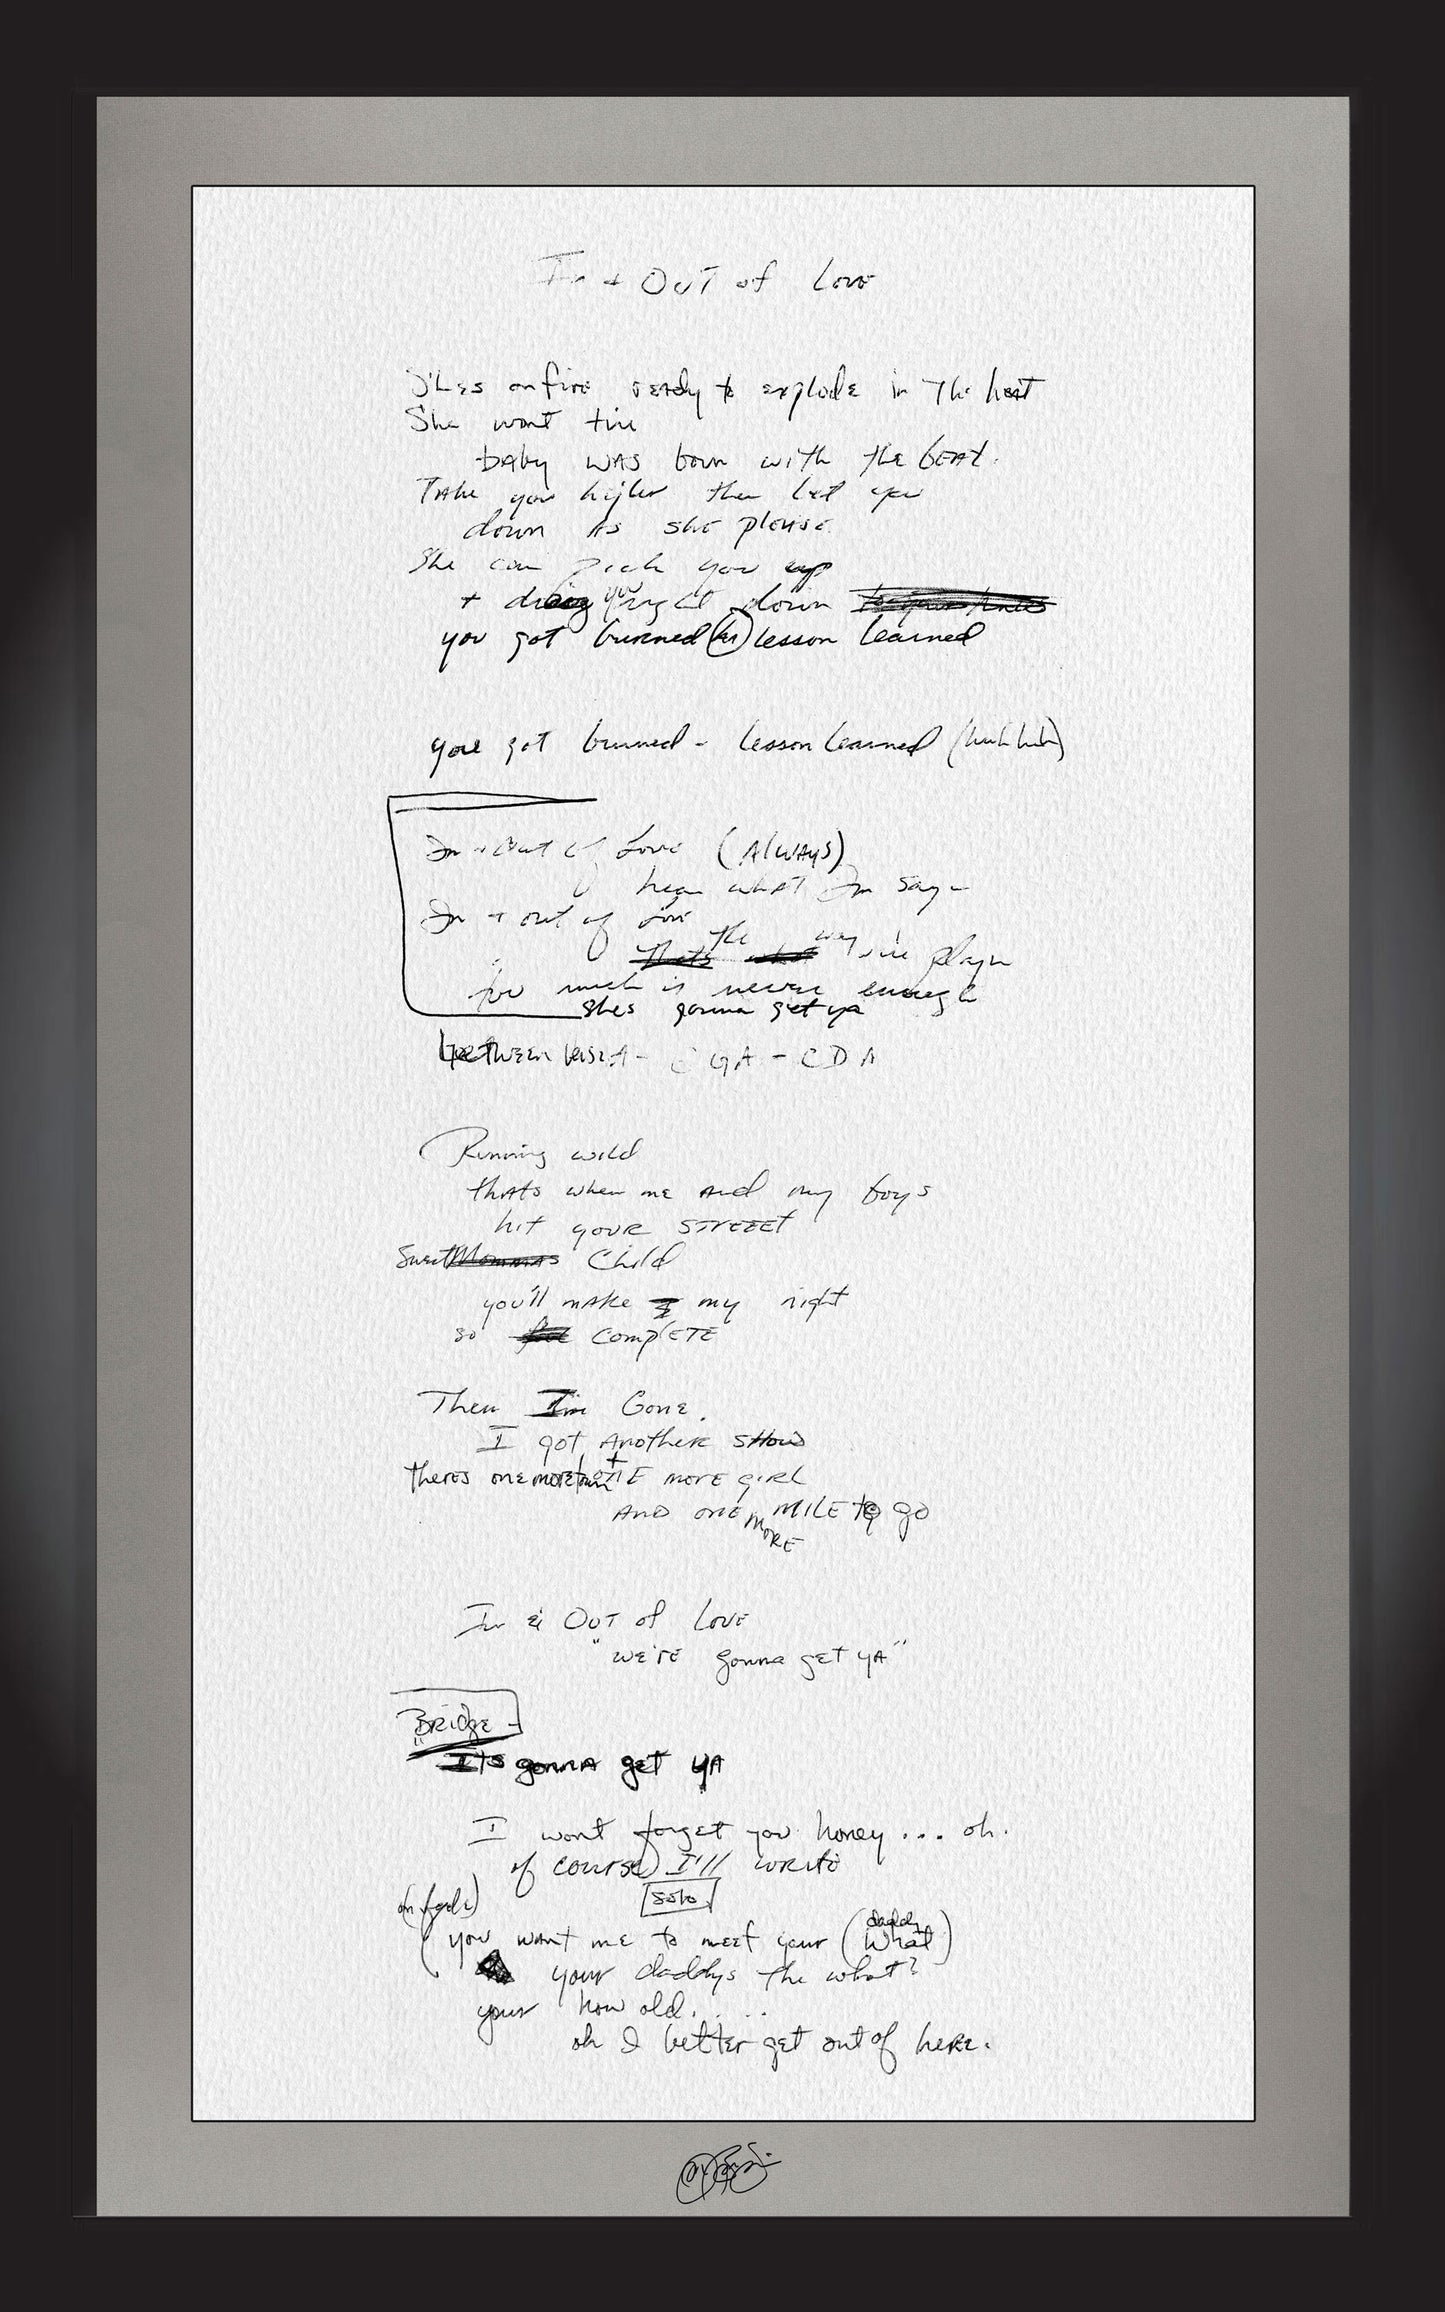 In + OUT of Love
She's on fire ready to explode in The heat
She wont tire
baby was born with the beat.
Take you higher then let you
down As she please
She can pick you up
+ drag you right down to your knees
you got burned (hu) lesson learned
you got burned - lesson learned (huh huh)
In + Out of Love (Always)
hear what Im sayn
In + out of love
Thats the what way were playn
too much is never enough
shes gonna get ya
between verse A - CGA - CDA
Running wild
thats when me and my boys
hit your streeet
Sweet Mommas Child
you'll make I my night
so complete
Then I'm Gone.
I got Another show
theres one more town + one more girl
And one more MILE to go
In & Out of Love
"we're gonna get yA"
Bridge -
"Its gonna get yA
I wont forget you honey... oh.
of course I'll write
solo
(on fade)
(you want me to meet your (daddy what)
your daddys the what?
your how old. . . .
oh I better get out of here.